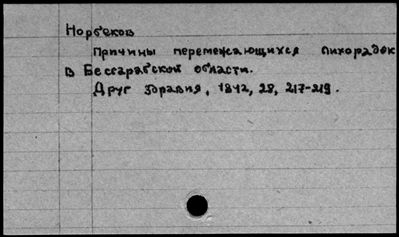 Норбеков
Причины перемежающихся лихорадок
в Бессарабской области.
Друг здравия, 1842, 28, 217-219.